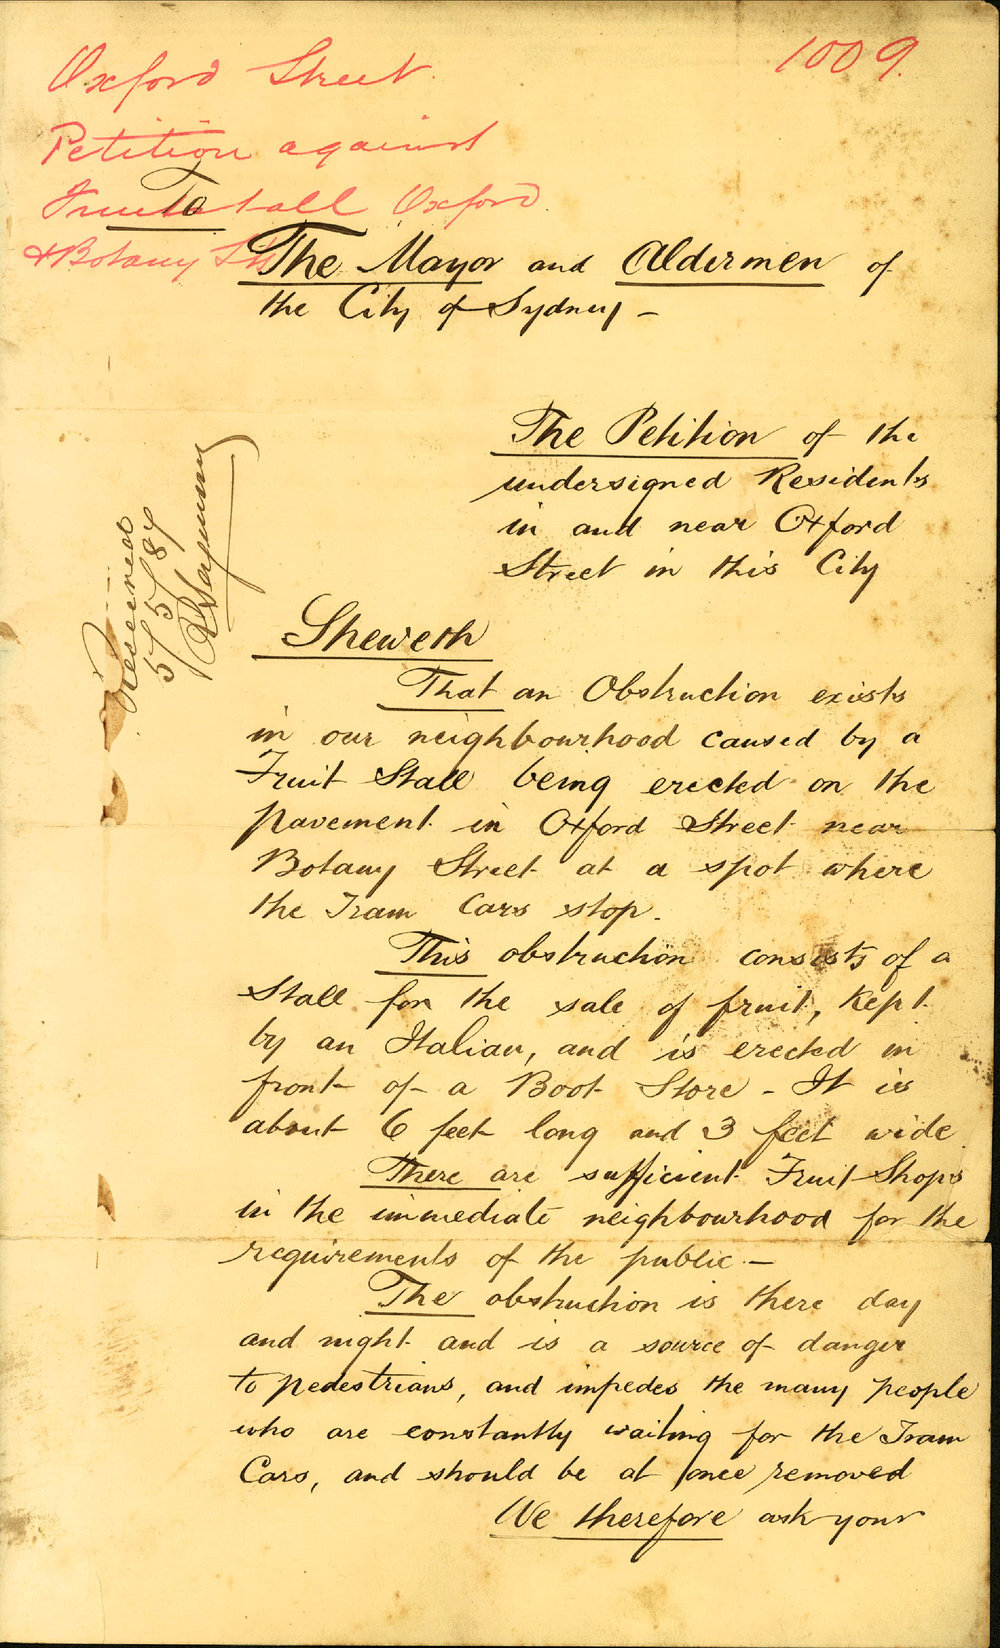 1009.
Oxford Street
Petition against
Fruit stall Oxford
& Botany Sts
To
The Mayor and Aldermen of
the City of Sydney —
The Petition of the
undersigned Residents
in and near Oxford
Street in this City
Received
5/5/87
Sheweth
That an Obstruction exists
in our neighbourhood caused by a
Fruit Stall being erected on the
pavement in Oxford Street near
Botany Street at a spot where
the Tram Cars stop.
This obstruction consists of a
Stall for the sale of fruit, kept
by an Italian, and is erected in
front of a Boot Store - It is
about 6 feet long and 3 feet wide.
There are sufficient Fruit Shops
in the immediate neighbourhood for the
requirements of the public. —
The obstruction is there day
and night and is a source of danger
to pedestrians, and impedes the many people
who are constantly waiting for the Tram
Cars, and should be at once removed
We therefore ask your